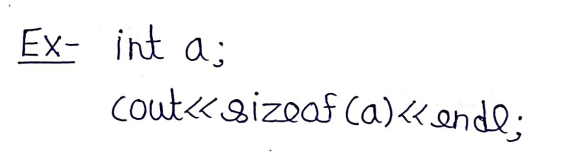 Ex- int a;
cout<<sizeof(a)<<endl;